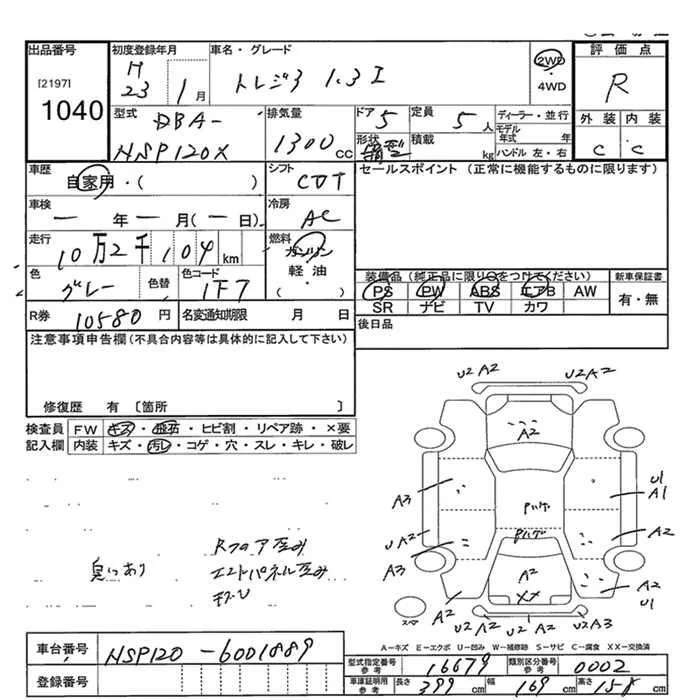 出品番号
[2197]
1040
初度登録年月
H
23 1月
車名・グレード
トレジア 1.3I
2WD
・
4WD
評価点
R
外装 内装
C C
型式
DBA-
NSP120X
排気量
1300cc
ドア 5
定員 5人
形状
積載 kg
ディーラー・並行
モデル年式 年
ハンドル 左・右
車歴
自家用・( )
シフト
CVT
セールスポイント(正常に機能するものに限ります)
車検
ー年ー月(ー日)
冷房
AC
走行
10万2千104km
燃料
ガソリン
軽・油
( ・ )
色
グレー
色替
色コード
1F7
装備品(純正品に限り○をつけてください)
PS PW ABS エアB AW
SR ナビ TV カワ
新車保証書
有・無
R券 10580円
名変通知期限 月 日
後日品
注意事項申告欄(不具合内容等は具体的に記入して下さい)
修復歴 有 〔箇所 〕
検査員
記入欄
FW キズ・飛石・ヒビ割・リペア跡・×要
内装 キズ・汚レ・コゲ・穴・スレ・キレ・破レ
臭いあり
Rフロア歪み
エンドパネル歪み
サビ
U2 A2 U2 A2
A2
A3
U1
A1
Pハゲ
UA2
A3
Pハゲ
A2
A2
XX
A2
A2
U1
スペア
U2 A2 UA2 U2 A3
A-キズ E-エクボ U-凹み W-補修跡 S-サビ C-腐食 XX-交換済
車台番号 NSP120-6001889
登録番号
型式指定番号 参考 16679
類別区分番号 参考 0002
車庫証明用 参考 長さ 399cm 幅 169cm 高さ 15 cm